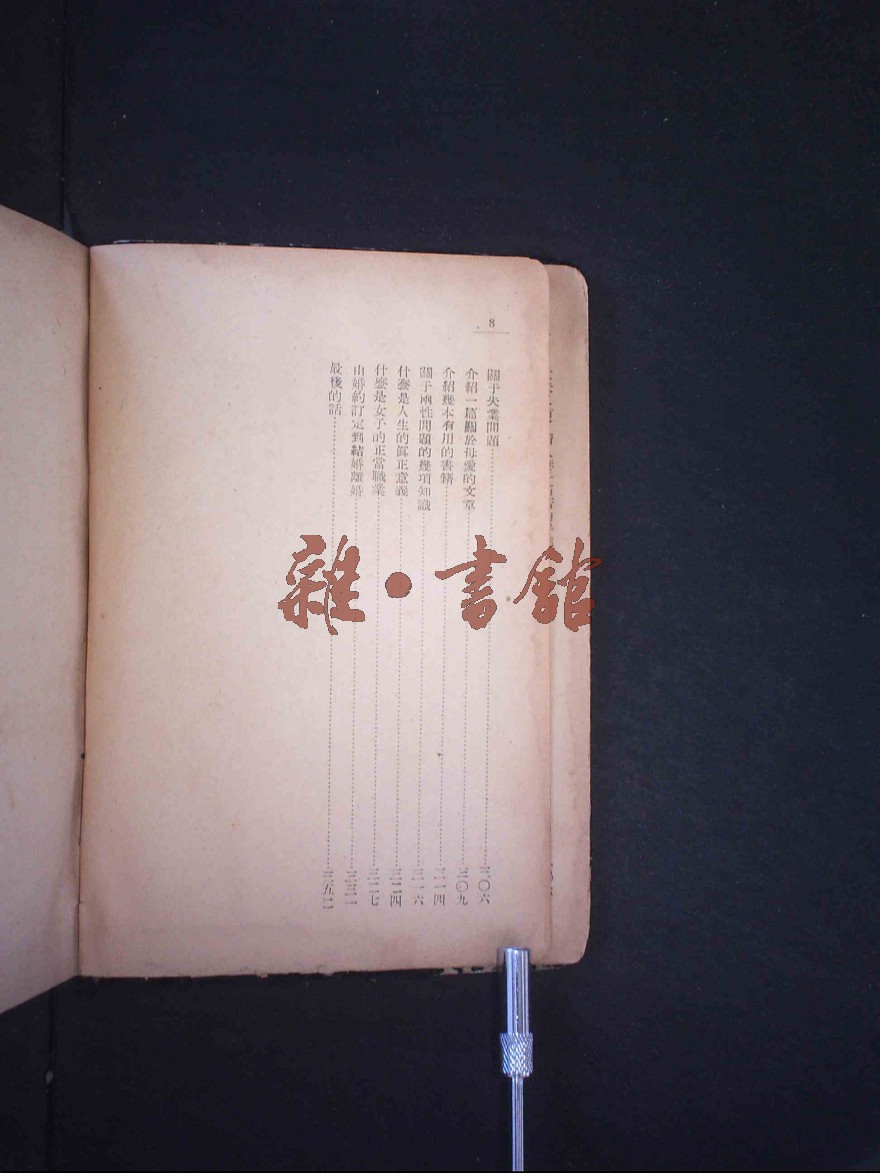 8
關于失業問題……三〇六
介紹一篇關於母愛的文章……三〇九
介紹幾本有用的書籍……三一四
關于兩性問題的幾項知識……三一六
什麼是人生的眞正意義……三二四
什麼是女子的正當職業……三二七
由婚約訂定到結婚離婚……三三一
最後的話……三五二
雜·書館